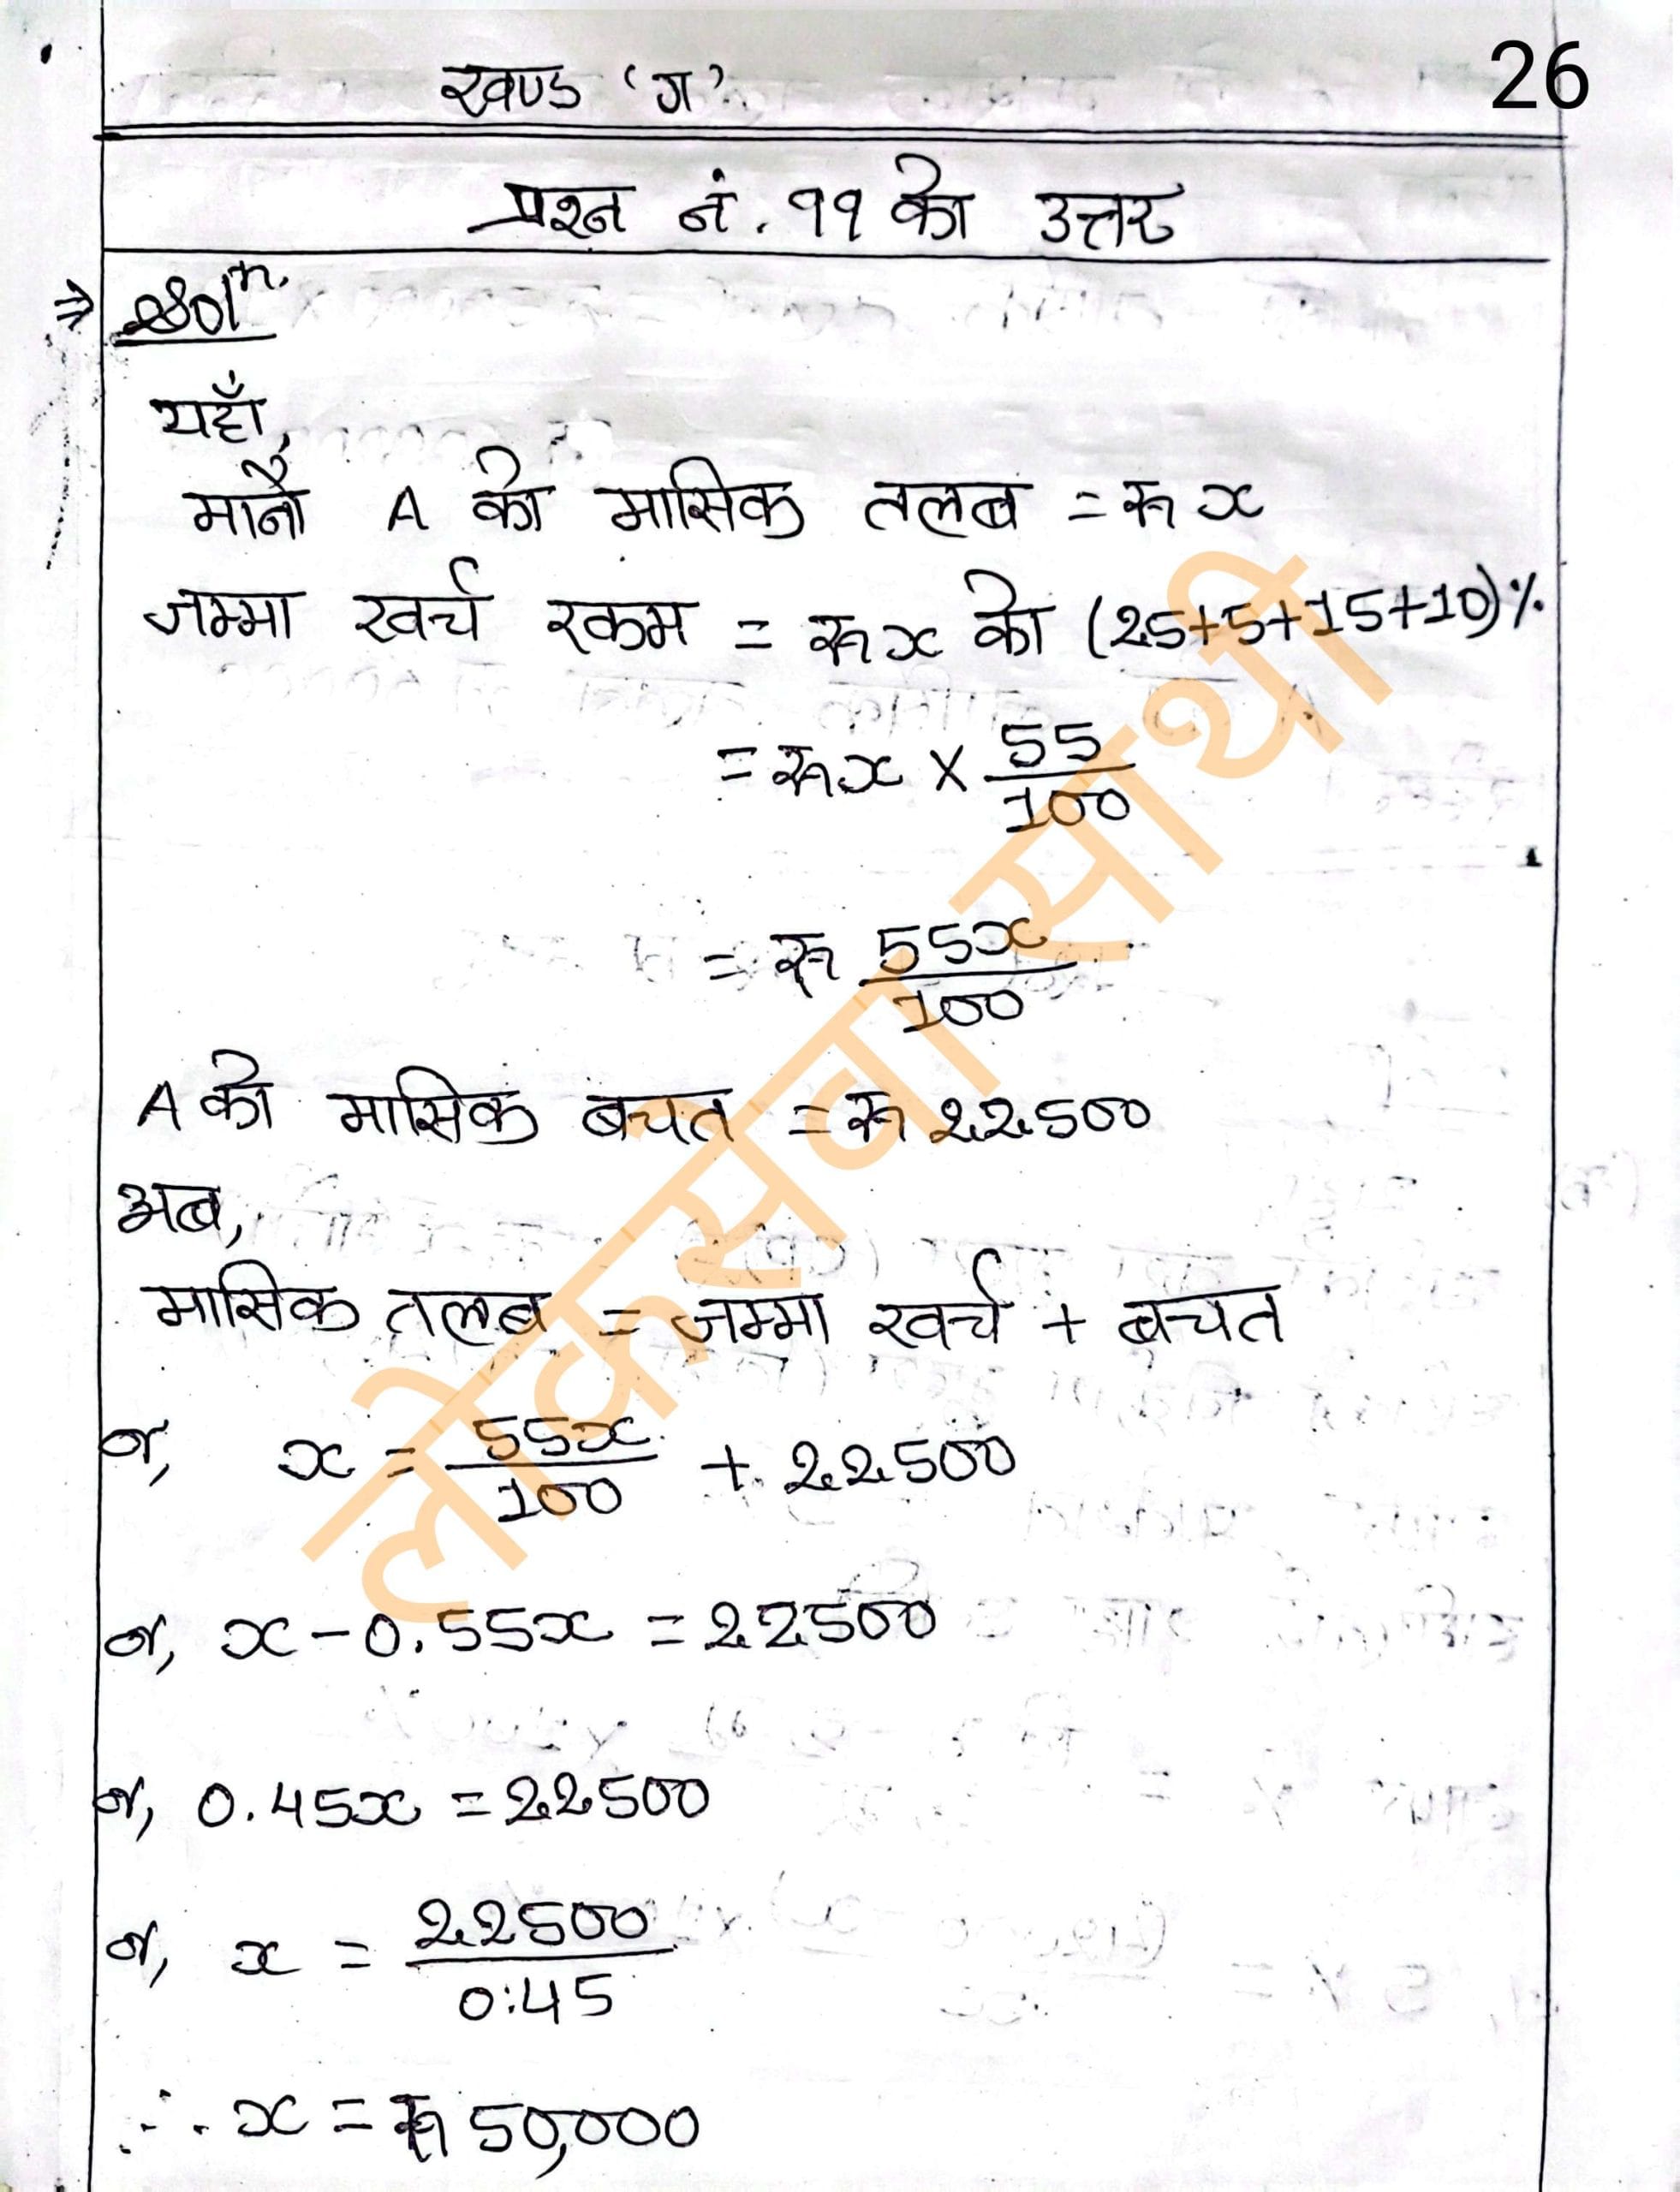 26
खण्ड 'ग'
प्रश्न नं. ११ को उत्तर
⇒ Solⁿ.
यहाँ,
मानौ A को मासिक तलब = रू x
जम्मा खर्च रकम = रू x को (25+5+15+10)%
= रू x × 55/100
= रू 55x/100
A को मासिक बचत = रू 22500
अब,
मासिक तलब = जम्मा खर्च + बचत
or, x = 55x/100 + 22500
or, x - 0.55x = 22500
or, 0.45x = 22500
or, x = 22500/0.45
∴ x = रू 50,000
लोकसेवा साथी